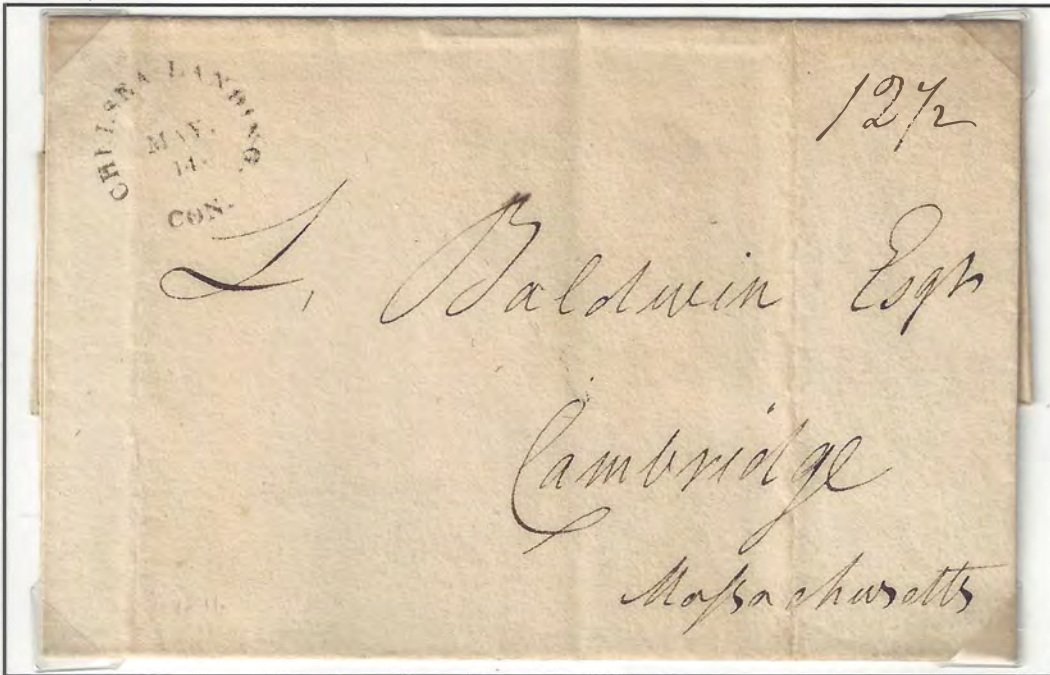 CHELSEA LANDING.
MAY.
14.
CON.
12 1/2
L. Baldwin Esqr
Cambridge
Massachusetts